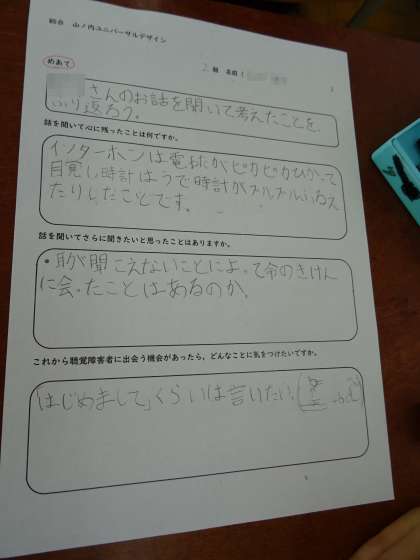 総合 山ノ内ユニバーサルデザイン
2 組 名前(
めあて
さんのお話を聞いて考えたことを、
ふり返ろう。
話を聞いて心に残ったことは何ですか。
インターホンは電球がピカピカひかって
目覚し時計はうで時計がブルブルふるえ
たりしたことです。
話を聞いてさらに聞きたいと思ったことはありますか。
・耳が聞こえないことによって命のきけん
に会ったことはあるのか。
これから聴覚障害者に出会う機会があったら、どんなことに気をつけたいですか。
はじめまして」くらいは言いたい。